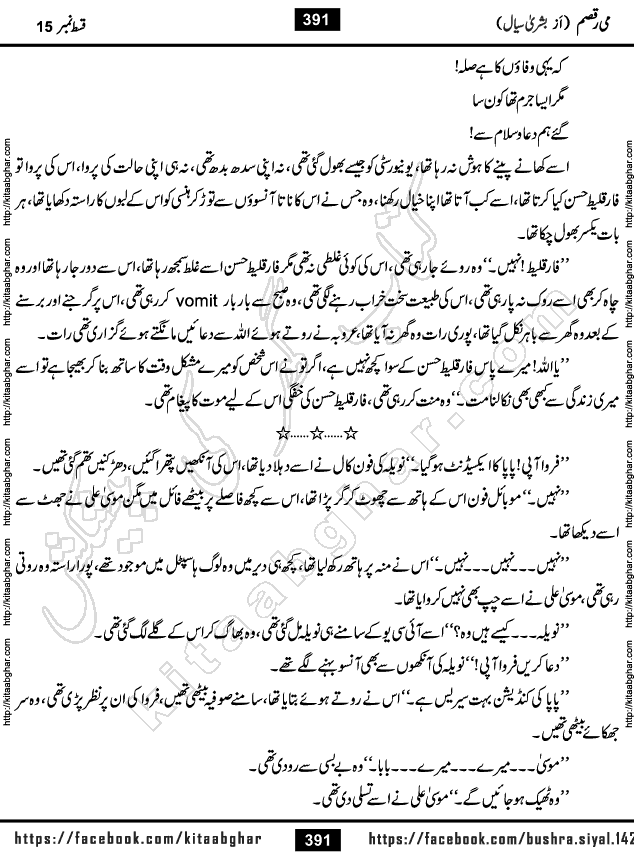 می رقصم (از بشریٰ سیال)
391
قسط نمبر 15
کہ یہی وفاؤں کا ہے صلہ!
مگر ایسا جرم تھا کون سا
گئے ہم دعا و سلام سے!
اسے کھانے پینے کا ہوش نہ رہا تھا، یونیورسٹی کو جیسے بھول گئی تھی، نہ اپنی سدھ بدھ تھی، نہ ہی اپنی حالت کی پروا، اس کی پروا تو
فارقلیط حسن کیا کرتا تھا، اسے کب آتا تھا اپنا خیال رکھنا، وہ جس نے اس کا ناتا آنسوؤں سے توڑ کر ہنسی کو اس کے لبوں کا راستہ دکھایا تھا، ہر
بات یکسر بھول چکا تھا۔
’’فارقلیط! نہیں۔‘‘ وہ روئے جا رہی تھی، اس کی کوئی غلطی نہ تھی مگر فارقلیط حسن اسے غلط سمجھ رہا تھا، اس سے دور جا رہا تھا اور وہ
چاہ کر بھی اسے روک نہ پا رہی تھی، اس کی طبیعت سخت خراب رہنے لگی تھی، وہ صبح سے بار بار vomit کر رہی تھی، اس پر گرجنے اور برسنے
کے بعد وہ گھر سے باہر نکل گیا تھا، پوری رات وہ گھر نہ آیا تھا، عروبہ نے روتے ہوئے اللہ سے دعائیں مانگتے ہوئے گزاری تھی رات۔
’’یا اللہ! میرے پاس فارقلیط حسن کے سوا کچھ نہیں ہے، اگر تو نے اس شخص کو میرے مشکل وقت کا ساتھ بنا کر بھیجا ہے تو اسے
میری زندگی سے کبھی بھی نکالنا مت۔‘‘ وہ منت کر رہی تھی، فارقلیط حسن کی خفگی اس کے لیے موت کا پیغام تھی۔
☆......☆......☆
’’فروا آپی! پاپا کا ایکسیڈنٹ ہو گیا۔‘‘ نویلہ کی فون کال نے اسے دہلا دیا تھا، اس کی آنکھیں پتھرا گئیں، دھڑکنیں تھم گئی تھیں۔
’’نہیں۔‘‘ موبائل فون اس کے ہاتھ سے چھوٹ کر گر پڑا تھا، اس سے کچھ فاصلے پر بیٹھے فائل میں مگن موسیٰ علی نے جھٹ سے
اسے دیکھا تھا۔
’’نہیں۔۔۔نہیں۔۔۔نہیں۔‘‘ اس نے منہ پر ہاتھ رکھ لیا تھا، کچھ ہی دیر میں وہ لوگ ہاسپٹل میں موجود تھے، پورا راستہ وہ روتی
رہی تھی، موسیٰ علی نے اسے چپ بھی نہیں کروایا تھا۔
’’نویلہ۔۔۔کیسے ہیں وہ؟‘‘ اسے آئی سی یو کے سامنے ہی نویلہ مل گئی تھی، وہ بھاگ کر اس کے گلے لگ گئی تھی۔
’’دعا کریں فروا آپی!‘‘ نویلہ کی آنکھوں سے بھی آنسو بہنے لگے تھے۔
’’پاپا کی کنڈیشن بہت سیریس ہے۔‘‘ اس نے روتے ہوئے بتایا تھا، سامنے صوفیہ بیٹھی تھیں، فروا کی ان پر نظر پڑی تھی، وہ سر
جھکائے بیٹھی تھیں۔
’’موسیٰ۔۔۔میرے۔۔۔میرے۔۔۔بابا۔‘‘ وہ بے بسی سے رو دی تھی۔
’’وہ ٹھیک ہو جائیں گے۔‘‘ موسیٰ علی نے اسے تسلی دی تھی۔
http://kitaabghar.com http://kitaabghar.com http://kitaabghar.com http://kitaabghar.com http://kitaabghar.com http://kitaabghar.com
http://kitaabghar.com http://kitaabghar.com http://kitaabghar.com http://kitaabghar.com http://kitaabghar.com http://kitaabghar.com
کتاب گھر کی پیشکش
kitaabghar.com
https://facebook.com/kitaabghar
391
https://facebook.com/bushra.siyal.142